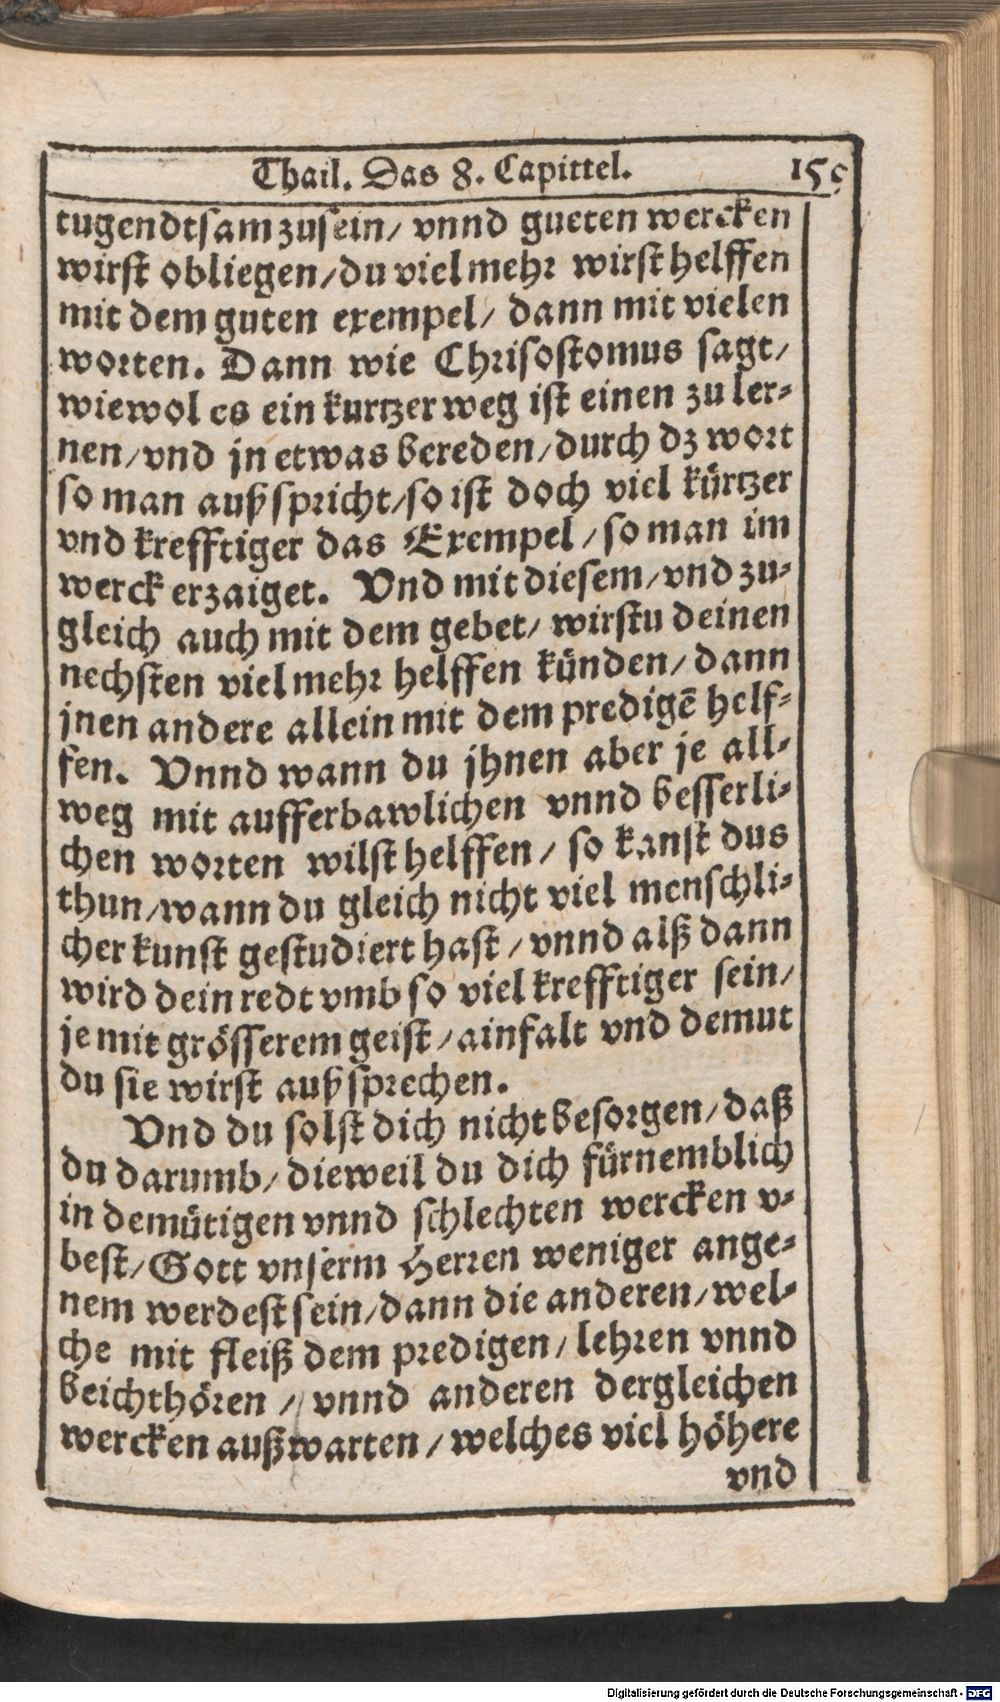 Thail. Das 8. Capittel. 159
tugendtsam zusein/ vnnd gueten wercken
wirst obliegen/du viel mehr wirst helffen
mit dem guten exempel/ dann mit vielen
worten. Dann wie Chrisostomus sagt/
wiewol es ein kurtzer weg ist einen zu ler-
nen/vnd jn etwas bereden/durch dz wort
so man außspricht/so ist doch viel kürtzer
vnd krefftiger das Exempel/so man im
werck erzaiget. Vnd mit diesem/vnd zu-
gleich auch mit dem gebet/ wirstu deinen
nechsten viel mehr helffen künden/ dann
jnen andere allein mit dem predigē helf-
fen. Vnnd wann du jhnen aber je all-
weg mit aufferbawlichen vnnd besserli-
chen worten wilst helffen/ so kanst dus
thun/wann du gleich nicht viel menschli-
cher kunst gestudiert hast/vnnd alß dann
wird dein redt vmb so viel krefftiger sein/
je mit grösserem geist/ainfalt vnd demut
du sie wirst außsprechen.
Vnd du solst dich nicht besorgen/daß
du darumb/dieweil du dich fürnemblich
in demütigen vnnd schlechten wercken v-
best/Gott vnserm Herren weniger ange-
nem werdest sein/dann die anderen/wel-
che mit fleiß dem predigen/lehren vnnd
beichthören/ vnnd anderen dergleichen
wercken außwarten/welches viel höhere
vnd
Digitalisierung gefördert durch die Deutsche Forschungsgemeinschaft - DFG